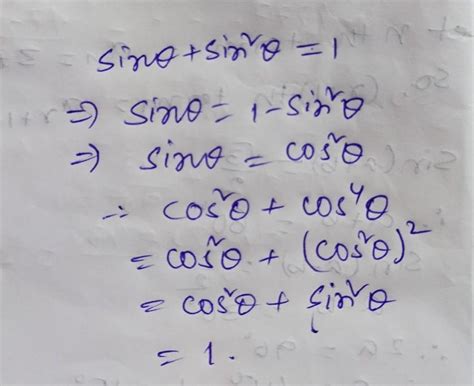 sinθ + sin²θ = 1
⇒ sinθ = 1 - sin²θ
⇒ sinθ = cos²θ
∴ cos²θ + cos⁴θ
= cos²θ + (cos²θ)²
= cos²θ + sin²θ
= 1.